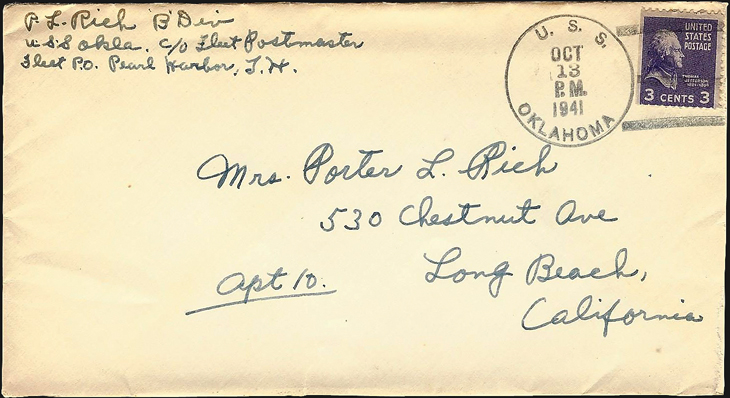 P. L. Rich "B" Div
U.S.S Okla. c/o Fleet Postmaster
Fleet P.O. Pearl Harbor, T.H.
U. S. S.
OCT
13
P.M.
1941
OKLAHOMA
UNITED
STATES
POSTAGE
THOMAS
JEFFERSON
3 CENTS 3
Mrs. Porter L. Rich
530 Chestnut Ave
Apt 10. Long Beach,
California